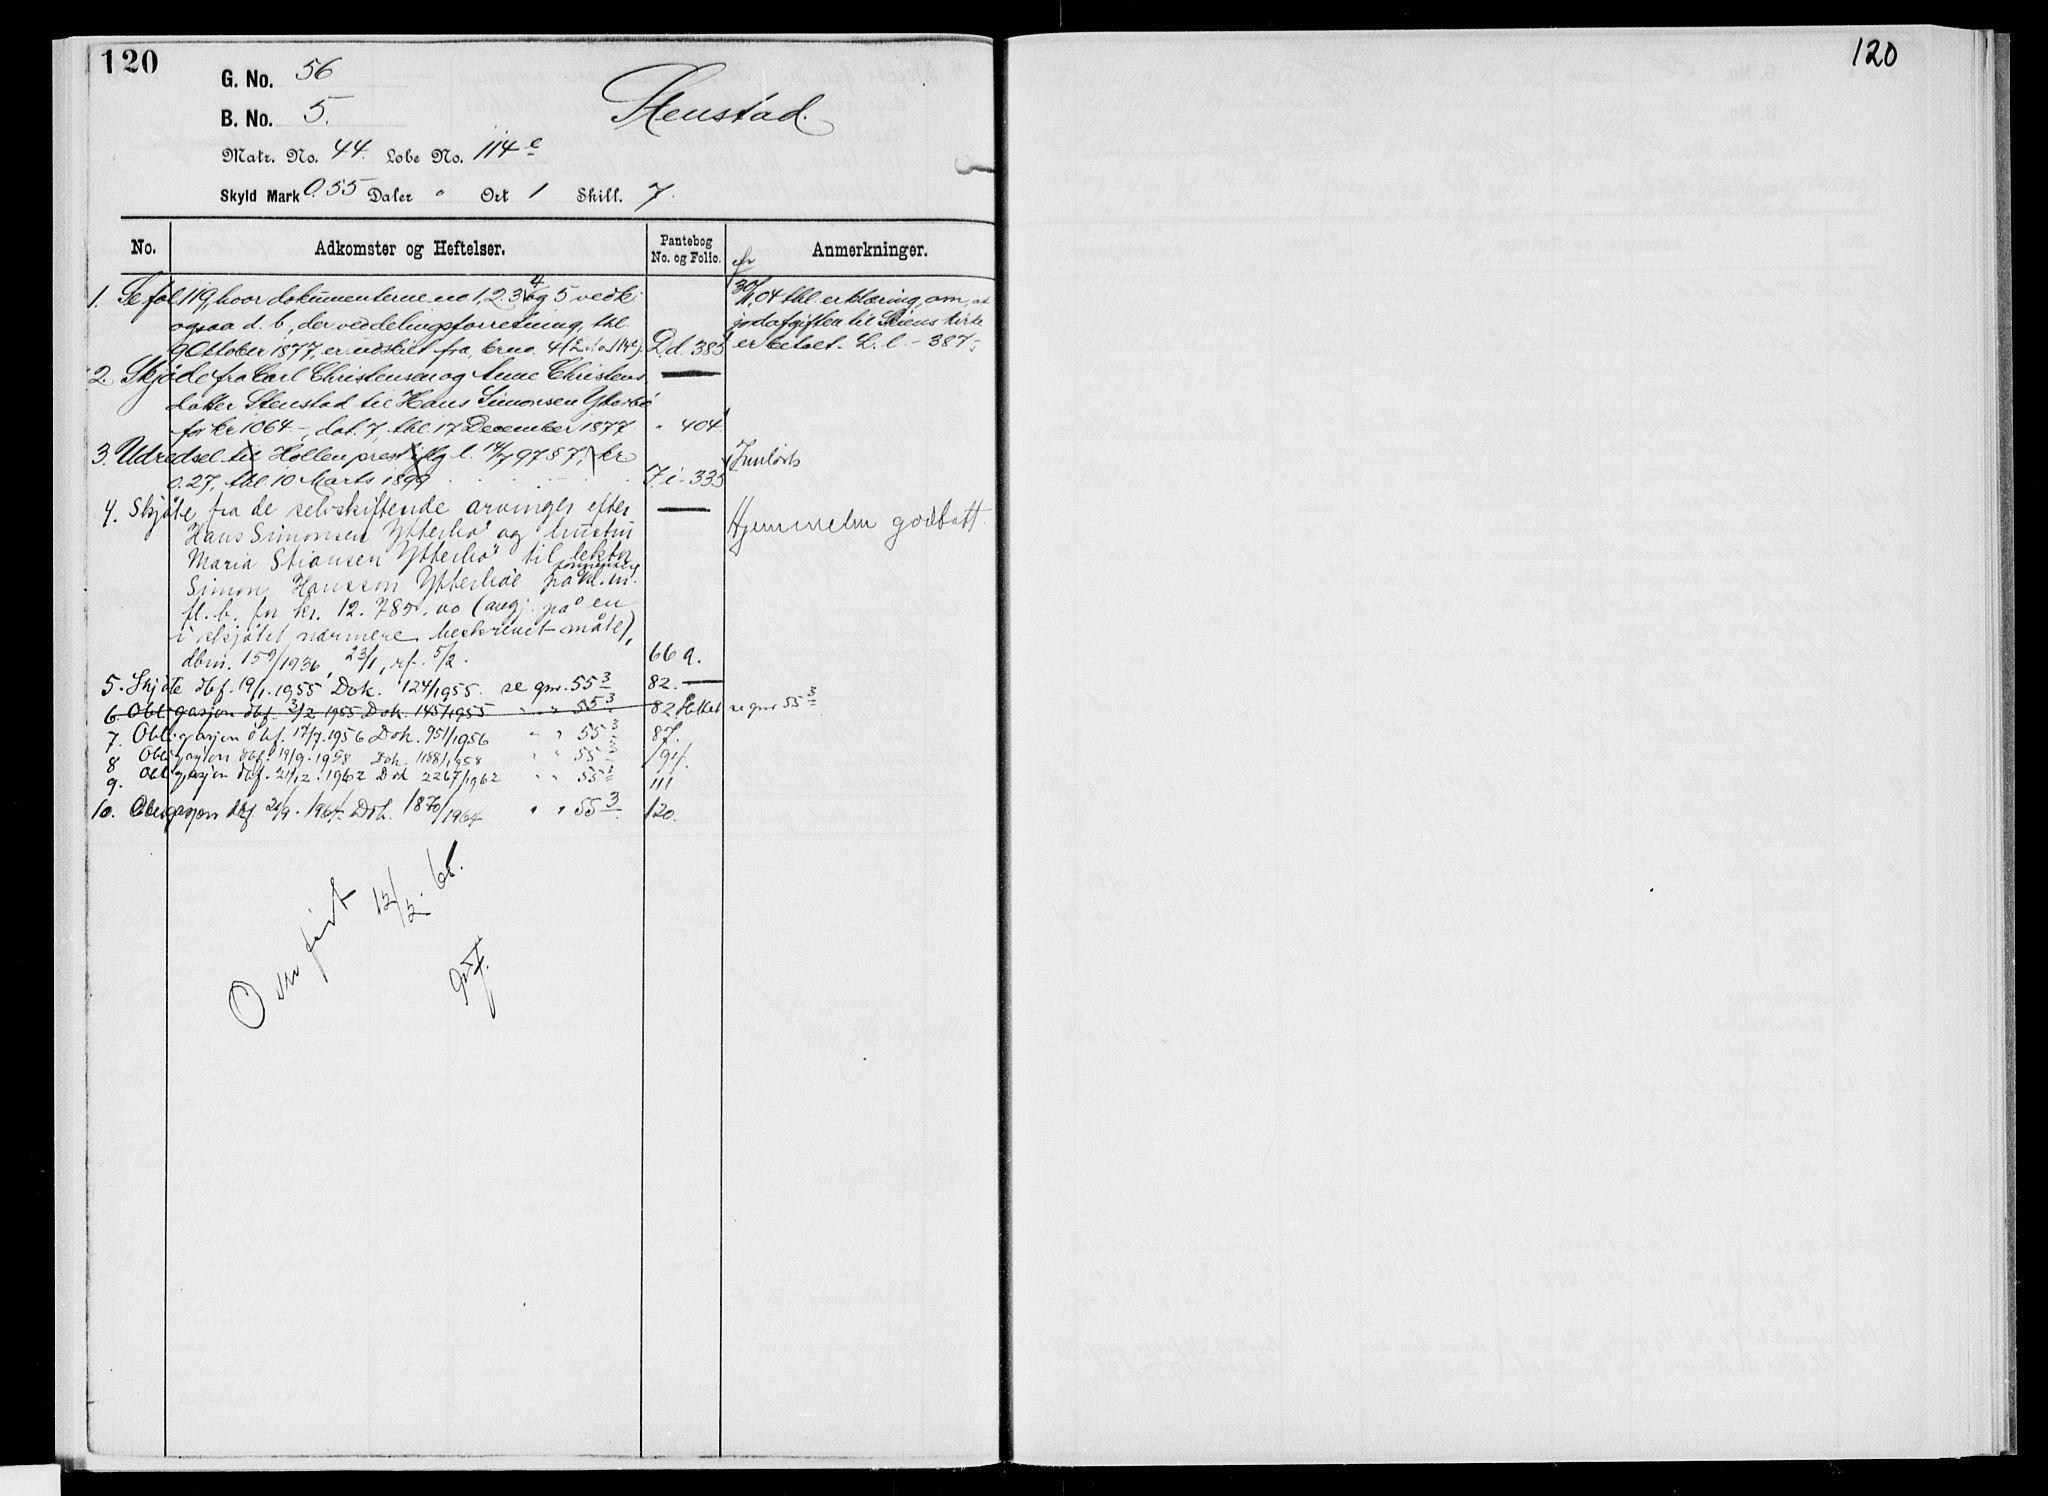 120
G. No. 56
B. No. 5.
Stenstad.
Matr. No. 44. Løbe No. 114 e
Skyld Mark 0.55 Daler " Ort 1 Skill. 7.
No. Adkomster og Heftelser. Pantebog No. og Folio. Anmerkninger.
1. Se fol 119, hvor dokumenterne no 1, 2, 3, 4 og 5 vedk.
ogsaa d. b., der ved delingsforretning, thl.
9 Oktober 1877, er udskilt fra brno. 4 D. d. 385
30/4.04 thl. erklæring, om, at
jordafgiften til Skiens kirke
er betalt. L. l. - 387
2. Skjøde fra Carl Christensen og Anne Christens
datter Stenstad til Hans Simonsen Ytterbø
for kr 1064 -, dat. 7, thl. 17 December 1877 " 404
3. Udredsel til Hollen prestegj. l. 14/7 9757, kr
0.27, thl 10 Marts 1899 F. i - 335 Indløst
4. Skjøte fra de selvskiftende arvinger efter
Hans Simonsen Ytterbø og hustru
Maria Stiansen Ytterbø til lektor
Simon Hanssen Ytterbøe på d.
fl. b. for kr. 12.785.00 (avgj. på en
i skjøtet nærmere beskrevet måte),
dbnr. 159/1936, 23/1, rf. 5/2. 66 a.
Hjemmelen godtatt.
5. Skjøte dbf. 19/1.1955 Dok. 124/1955. se gnr. 55 3 82.
6. Obligasjon dbf. 3/2 1955 Dok. 145/1955 " " 55 3 82 Slettet se gnr 55 3
7. Obligasjon dbf. 17/7.1956 Dok. 951/1956 " " 55 3 87.
8 Obligasjon dbf. 19/9.1958 Dok. 1158/1958 " " 55 3 94.
9. Obligasjon dbf. 21/12.1962 Dok 2267/1962 " " 55 3 111
10. Obligasjon dbf. 21/9.1964. Dok. 1870/1964 " " 55 3 120.
Overført 12/2. 68.
120